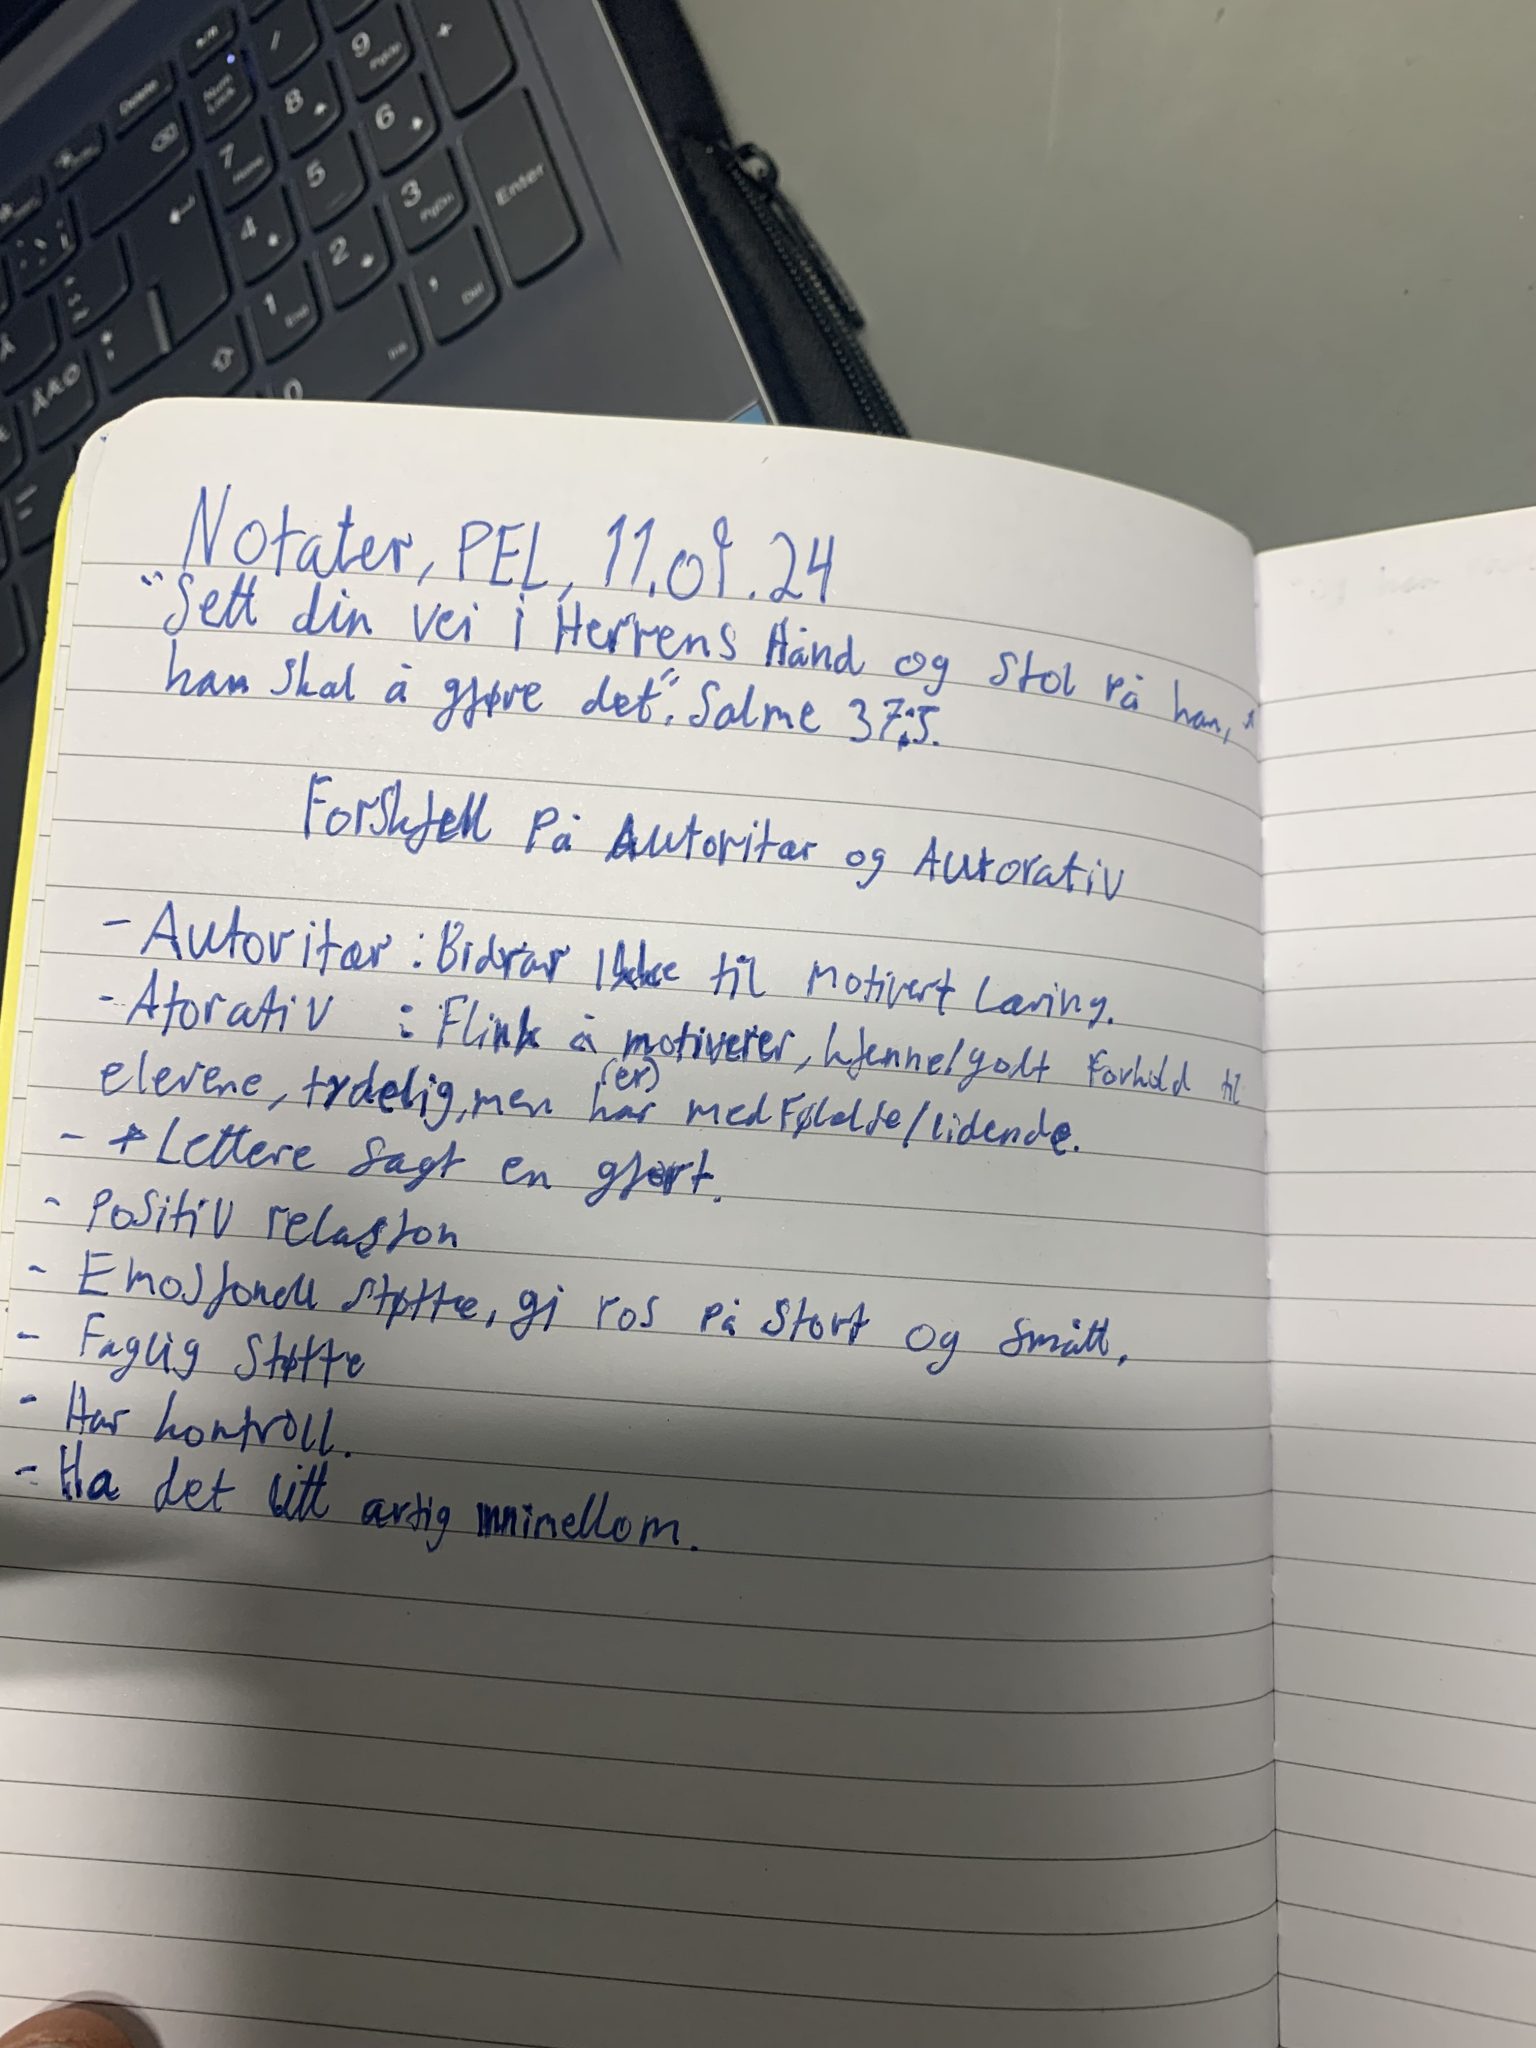 Delete
Num Lock
/
9 PgUp
+
7 Home
8
6
5
4
3 PgDn
Enter
2
1 End
,
Del
Ins
0
Notater, PEL, 11.09.24
"Sett din vei i Herrens Hånd og Stol på han,
han skal å gjøre det". Salme 37:5.
Forskjell på Autoritær og Autorativ
- Autoritær : Bidrar Ikke til Motivert Læring.
- Atorativ : Flink å motiverer, kjenne/godt Forhold til
elevene, tydelig, men har (er) medFølelse/lidende.
- * Lettere sagt en gjort.
- Positiv relasjon
- Emosjonell støtte, gi ros på Stort og Smått.
- Faglig Støtte
- Har kontroll.
- Ha det litt artig innimellom.